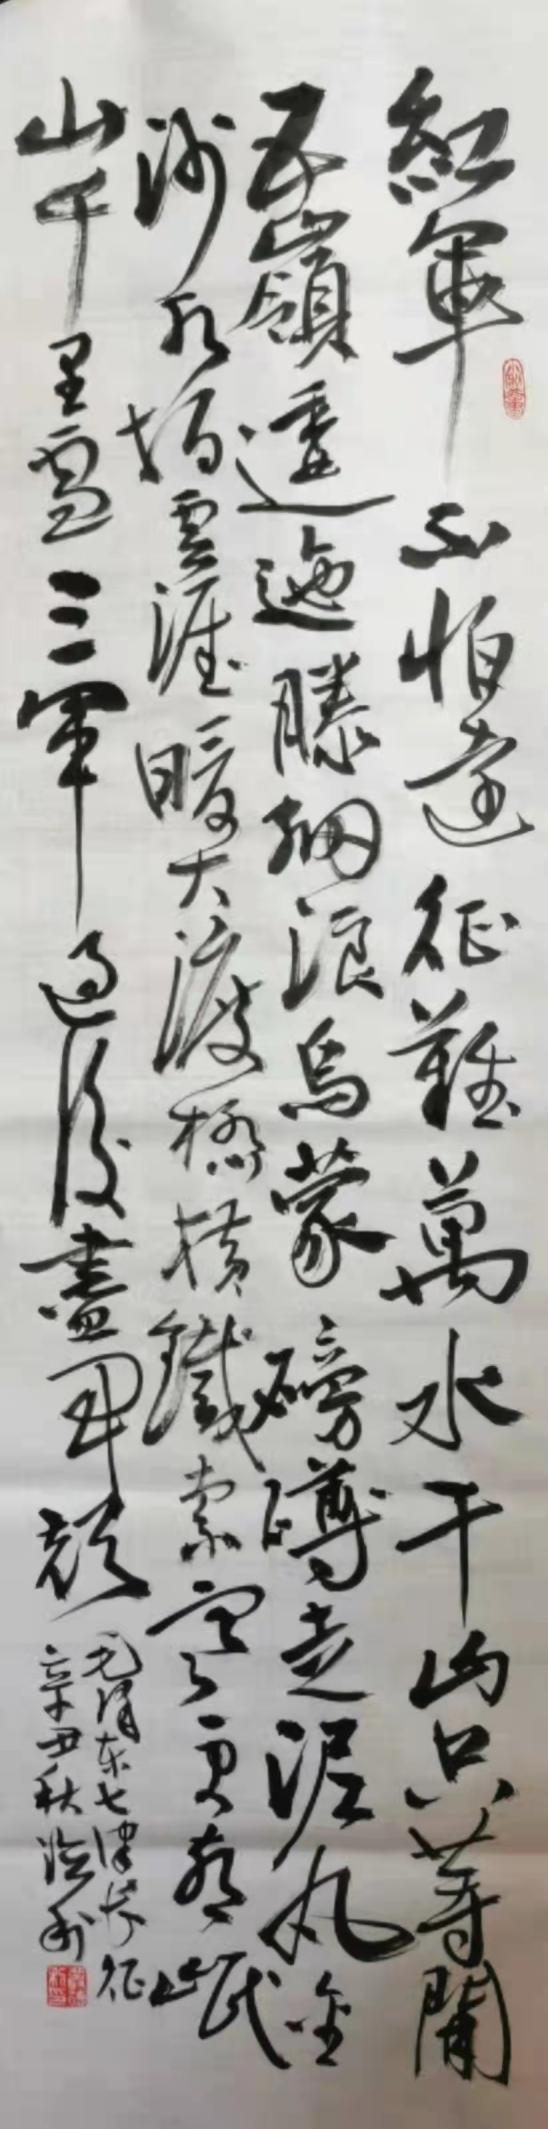 紅軍不怕遠征難萬水千山只等閑
五嶺逶迤騰細浪烏蒙磅礴走泥丸金
沙水拍雲崖暖大渡橋橫鐵索寒更喜岷
山千里雪三軍過後盡開顏
毛澤东七律长征
辛丑秋